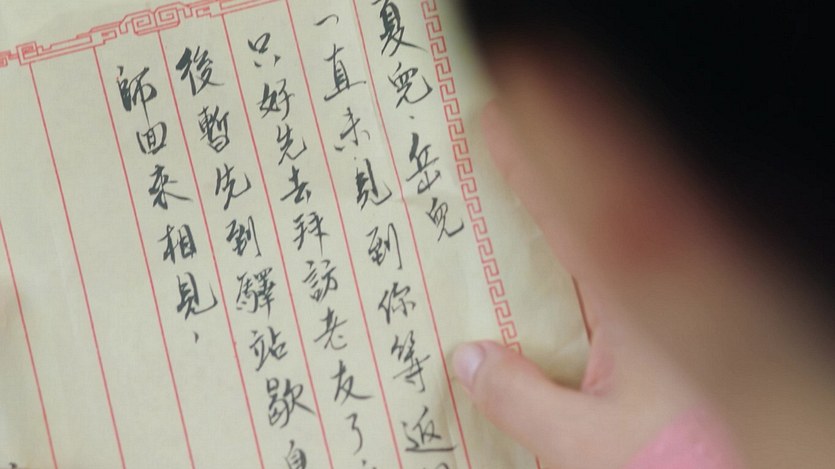 夏兒、岳兒
一直未見到你等返
只好先去拜訪老友了
後暫先到驛站歇息
師回來相見，